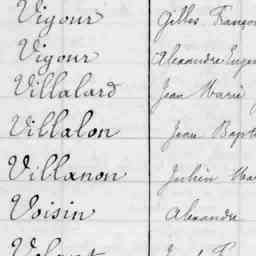 Vigour Gilles François
Vigour Alexandre Eugen
Villalard Jean Marie
Villalon Jean Bapt
Villanon Julien Mar
Voisin Alexandre